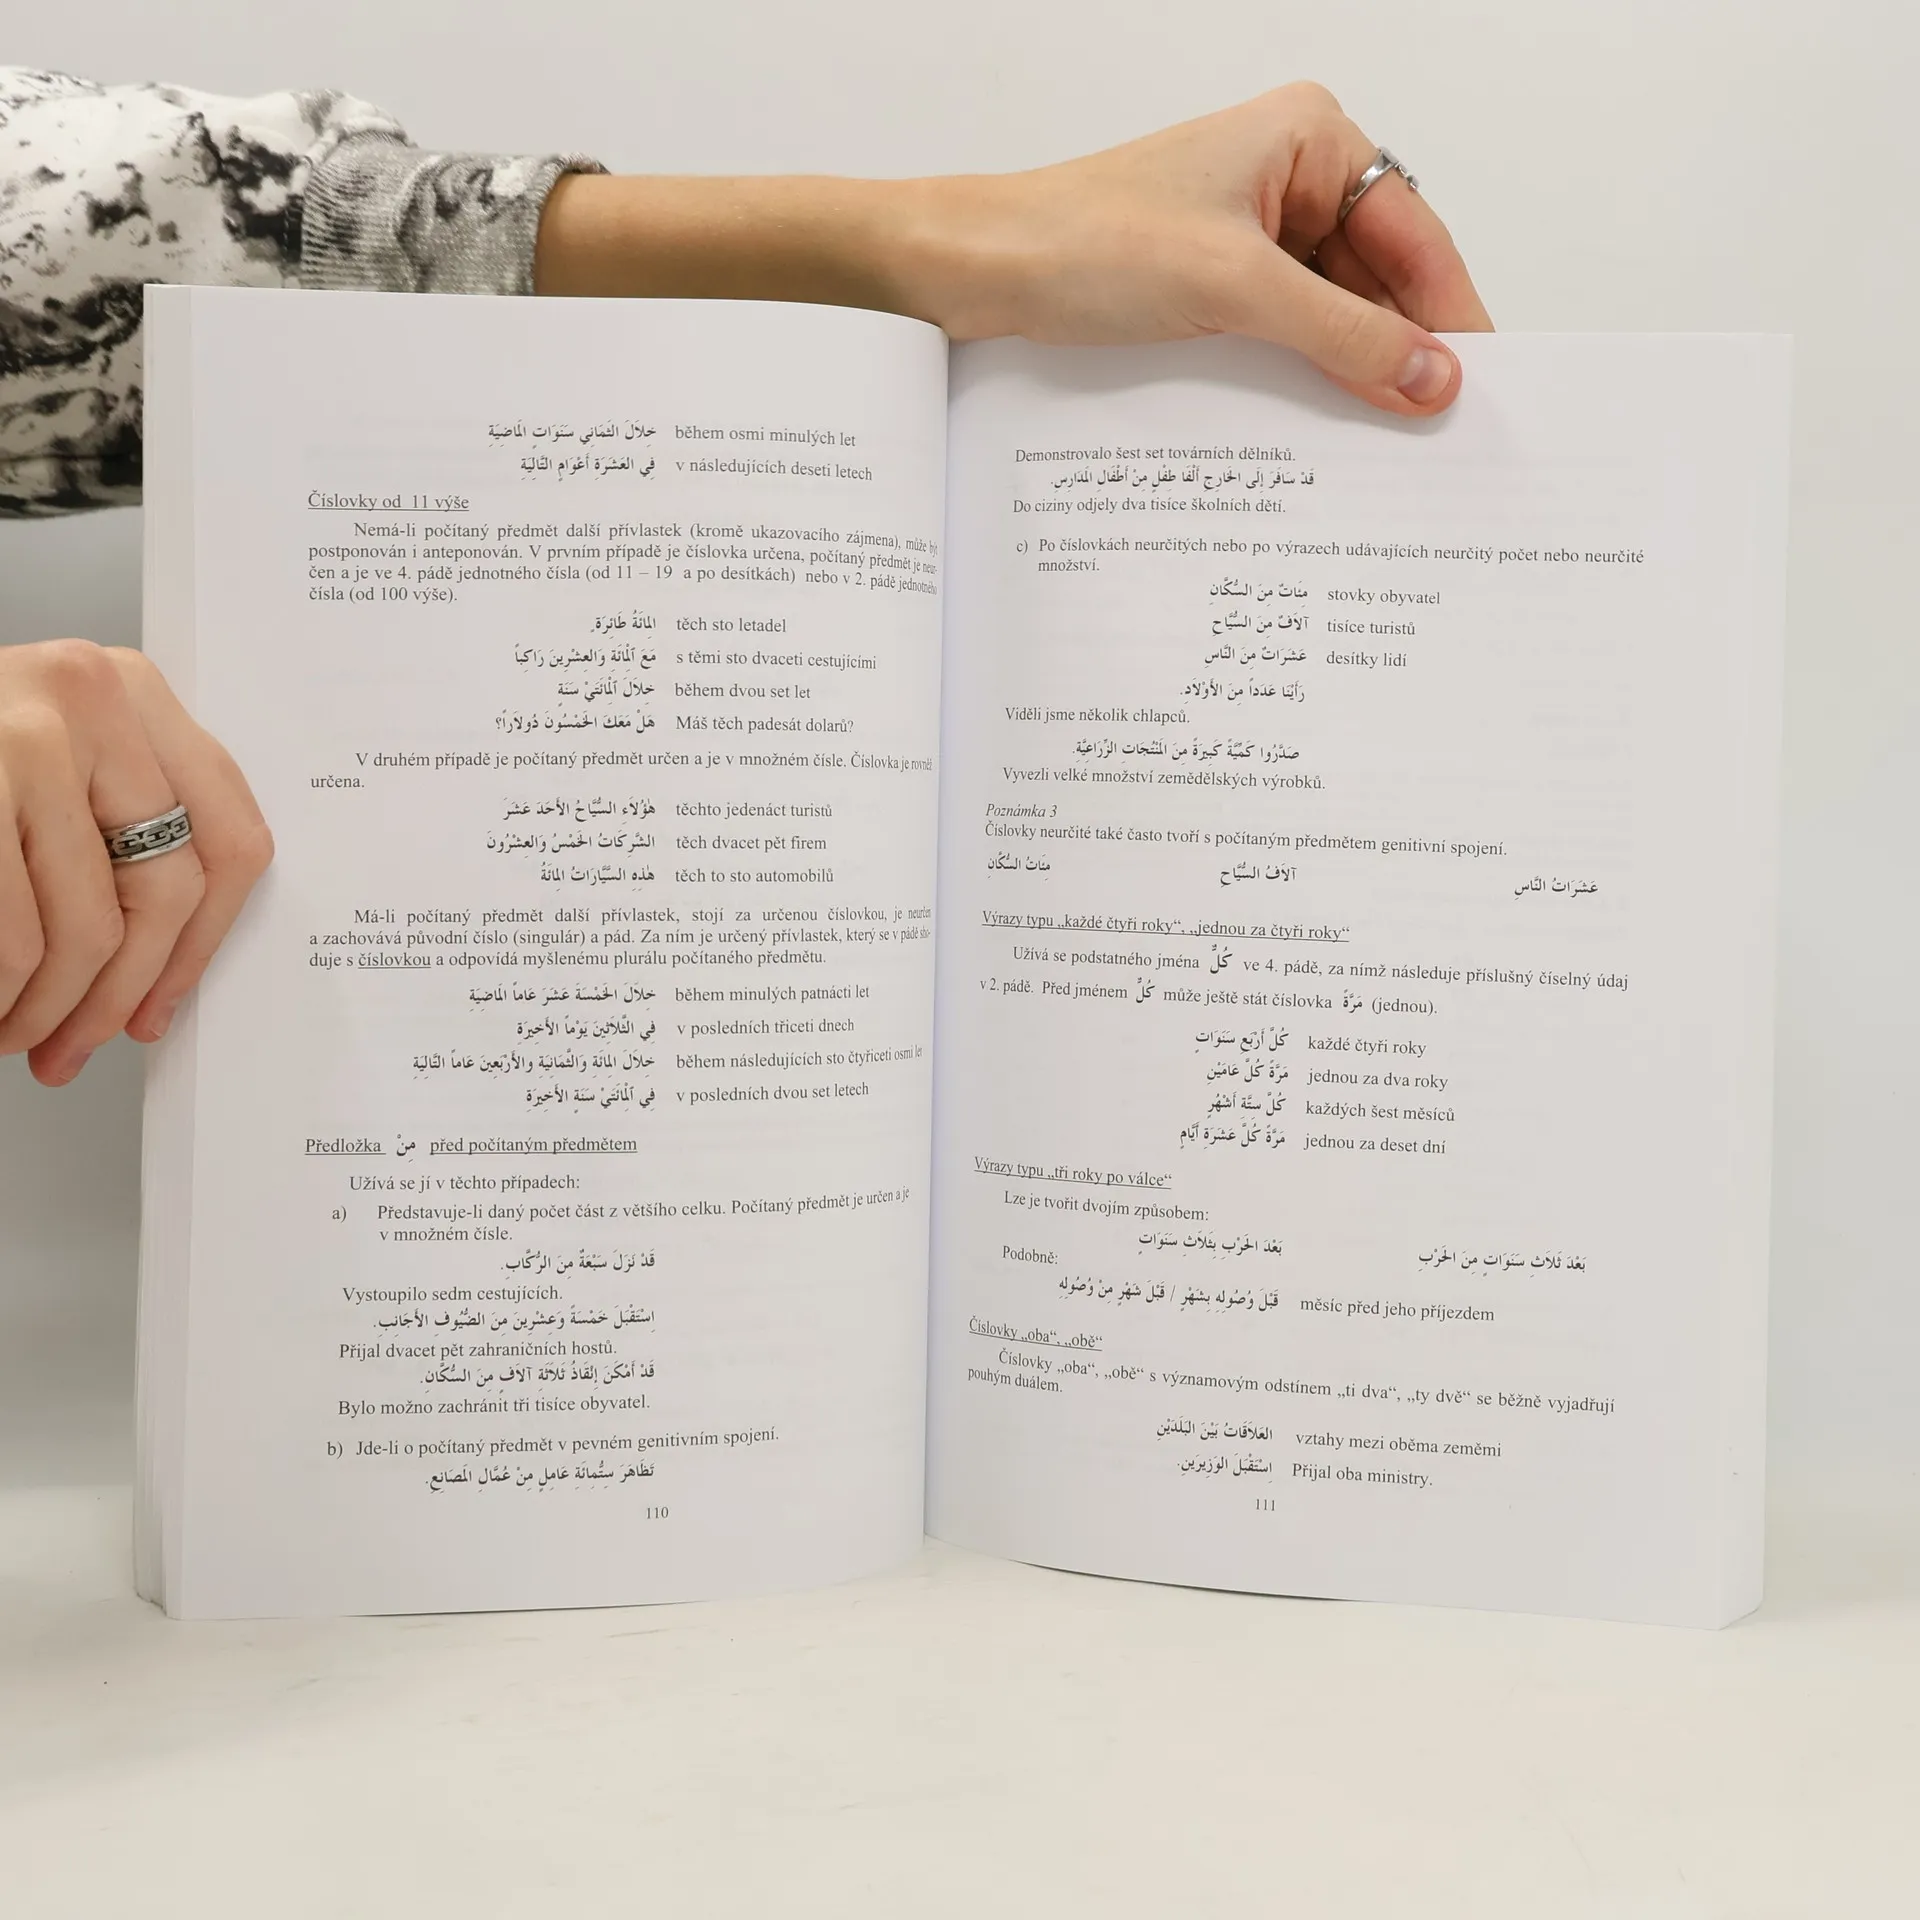 خِلَالَ الثَّمَانِي سَنَوَاتٍ الْمَاضِيَةِ během osmi minulých let
فِي العَشَرَةِ أَعْوَامٍ التَّالِيَةِ v následujících deseti letech
Číslovky od 11 výše
Nemá-li počítaný předmět další přívlastek (kromě ukazovacího zájmena), může být
postponován i anteponován. V prvním případě je číslovka určena, počítaný předmět je neur-
čen a je ve 4. pádě jednotného čísla (od 11 – 19 a po desítkách) nebo v 2. pádě jednotného
čísla (od 100 výše).
المِائَةُ طَائِرَةٍ těch sto letadel
مَعَ ٱلْمِائَةِ وَالعِشْرِينَ رَاكِباً s těmi sto dvaceti cestujícími
خِلَالَ ٱلْمِائَتَيْ سَنَةٍ během dvou set let
هَلْ مَعَكَ الخَمْسُونَ دُولَاراً؟ Máš těch padesát dolarů?
V druhém případě je počítaný předmět určen a je v množném čísle. Číslovka je rovněž
určena.
هٰؤُلَاءِ السُّيَّاحُ الأَحَدَ عَشَرَ těchto jedenáct turistů
الشَّرِكَاتُ الخَمْسُ وَالعِشْرُونَ těch dvacet pět firem
هٰذِهِ السَّيَّارَاتُ المِائَةُ těch to sto automobilů
Má-li počítaný předmět další přívlastek, stojí za určenou číslovkou, je neurčen
a zachovává původní číslo (singulár) a pád. Za ním je určený přívlastek, který se v pádě sho-
duje s číslovkou a odpovídá myšlenému plurálu počítaného předmětu.
خِلَالَ الخَمْسَةَ عَشَرَ عَاماً الْمَاضِيَةِ během minulých patnácti let
فِي الثَّلَاثِينَ يَوْماً الأَخِيرَةِ v posledních třiceti dnech
خِلَالَ المِائَةِ وَالثَّمَانِيَةِ والأَرْبَعِينَ عَاماً التَّالِيَةِ během následujících sto čtyřiceti osmi let
فِي ٱلْمِائَتَيْ سَنَةٍ الأَخِيرَةِ v posledních dvou set letech
Předložka مِنْ před počítaným předmětem
Užívá se jí v těchto případech:
a) Představuje-li daný počet část z většího celku. Počítaný předmět je určen a je
v množném čísle.
قَدْ نَزَلَ سَبْعَةٌ مِنَ الرُّكَّابِ.
Vystoupilo sedm cestujících.
اِسْتَقْبَلَ خَمْسَةً وَعِشْرِينَ مِنَ الضُّيُوفِ الأَجَانِبِ.
Přijal dvacet pět zahraničních hostů.
قَدْ أَمْكَنَ إِنْقَاذُ ثَلَاثَةِ آلَافٍ مِنَ السُّكَّانِ.
Bylo možno zachránit tři tisíce obyvatel.
b) Jde-li o počítaný předmět v pevném genitivním spojení.
تَظَاهَرَ سِتُّمِائَةِ عَامِلٍ مِنْ عُمَّالِ الْمَصَانِعِ.
110
Demonstrovalo šest set továrních dělníků.
قَدْ سَافَرَ إِلَى الخَارِجِ أَلْفَا طِفْلٍ مِنْ أَطْفَالِ الْمَدَارِسِ.
Do ciziny odjely dva tisíce školních dětí.
c) Po číslovkách neurčitých nebo po výrazech udávajících neurčitý počet nebo neurčité
množství.
مِئَاتٌ مِنَ السُّكَّانِ stovky obyvatel
آلَافٌ مِنَ السُّيَّاحِ tisíce turistů
عَشَرَاتٌ مِنَ النَّاسِ desítky lidí
رَأَيْنَا عَدَداً مِنَ الأَوْلَادِ.
Viděli jsme několik chlapců.
صَدَّرُوا كَمِّيَّةً كَبِيرَةً مِنَ الْمُنْتَجَاتِ الزِّرَاعِيَّةِ.
Vyvezli velké množství zemědělských výrobků.
Poznámka 3
Číslovky neurčité také často tvoří s počítaným předmětem genitivní spojení.
مِئَاتُ السُّكَّانِ آلَافُ السُّيَّاحِ عَشَرَاتُ النَّاسِ
Výrazy typu „každé čtyři roky“, „jednou za čtyři roky“
Užívá se podstatného jména كُلٌّ ve 4. pádě, za nímž následuje příslušný číselný údaj
v 2. pádě. Před jménem كُلٌّ může ještě stát číslovka مَرَّةً (jednou).
كُلَّ أَرْبَعِ سَنَوَاتٍ každé čtyři roky
مَرَّةً كُلَّ عَامَيْنِ jednou za dva roky
كُلَّ سِتَّةِ أَشْهُرٍ každých šest měsíců
مَرَّةً كُلَّ عَشَرَةِ أَيَّامٍ jednou za deset dní
Výrazy typu „tři roky po válce“
Lze je tvořit dvojím způsobem:
بَعْدَ الحَرْبِ بِثَلَاثِ سَنَوَاتٍ بَعْدَ ثَلَاثِ سَنَوَاتٍ مِنَ الحَرْبِ
Podobně:
قَبْلَ وُصُولِهِ بِشَهْرٍ / قَبْلَ شَهْرٍ مِنْ وُصُولِهِ měsíc před jeho příjezdem
Číslovky „oba“, „obě“
Číslovky „oba“, „obě“ s významovým odstínem „ti dva“, „ty dvě“ se běžně vyjadřují
pouhým duálem.
العَلَاقَاتُ بَيْنَ البَلَدَيْنِ vztahy mezi oběma zeměmi
اِسْتَقْبَلَ الوَزِيرَيْنِ. Přijal oba ministry.
111